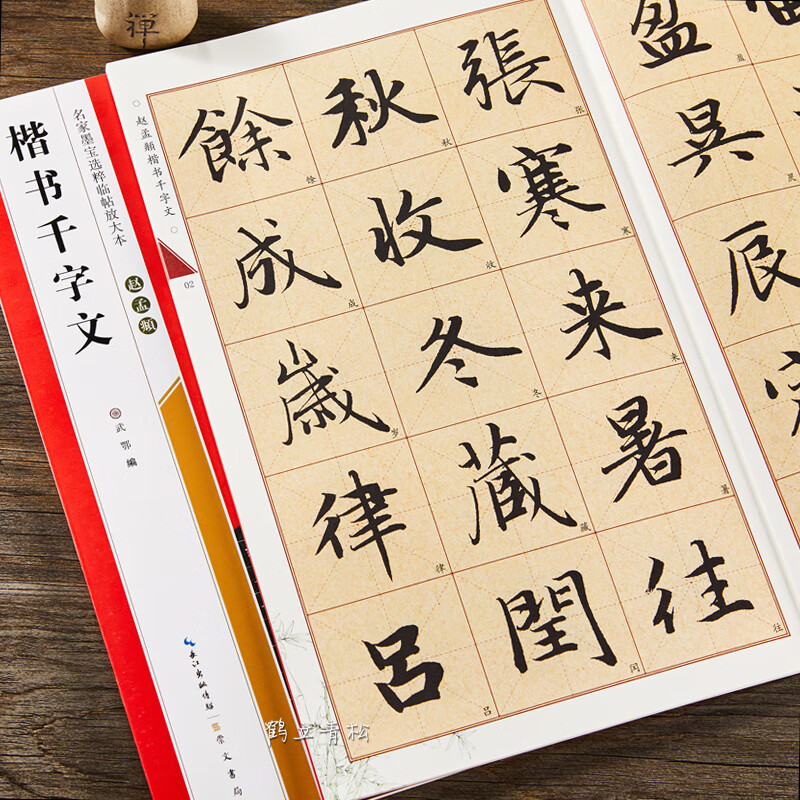 禪
楷书千字文
名家墨宝选粹临帖放大本
赵孟頫
武鄂 编
长江出版传媒
崇文书局
赵孟頫楷书千字文
02
盈
盈
昃
昃
辰
張寒来暑往
张寒来暑往
秋收冬藏閏
秋收冬藏闰
餘成歲律呂
成岁律吕
鹤立青松